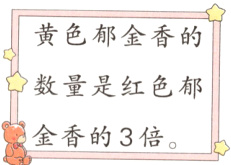 黄色郁金香的
数量是红色郁
金香的3倍。